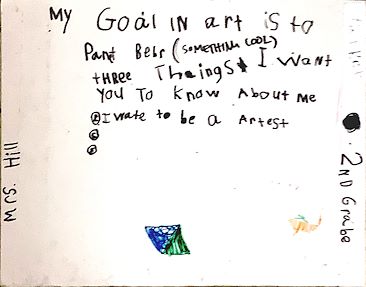 My Goal in art is to
Pant Bebr (SOMETHING COOL)
three Thaings I want
you To know About me
I wate to be a Artest
Mrs. Hill
2ND Grabe